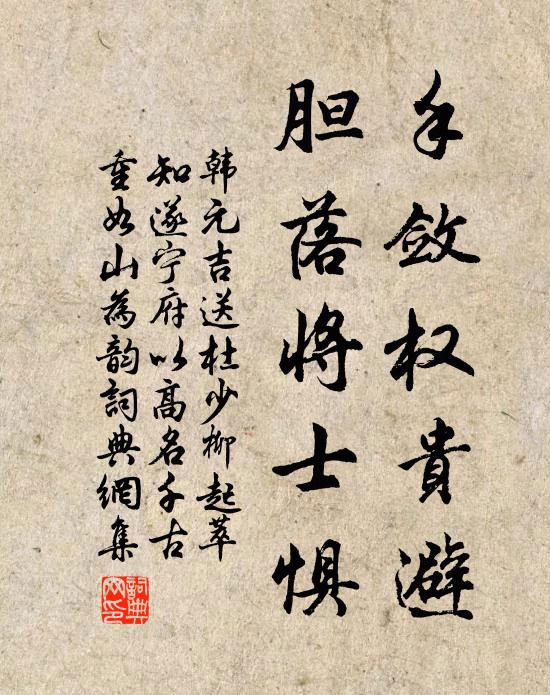 手敛权貴避
胆落将士惧
韩元吉送杜少柳起萃
知遂宁府以高名千古
重如山為韵詞典網集
詞典网印